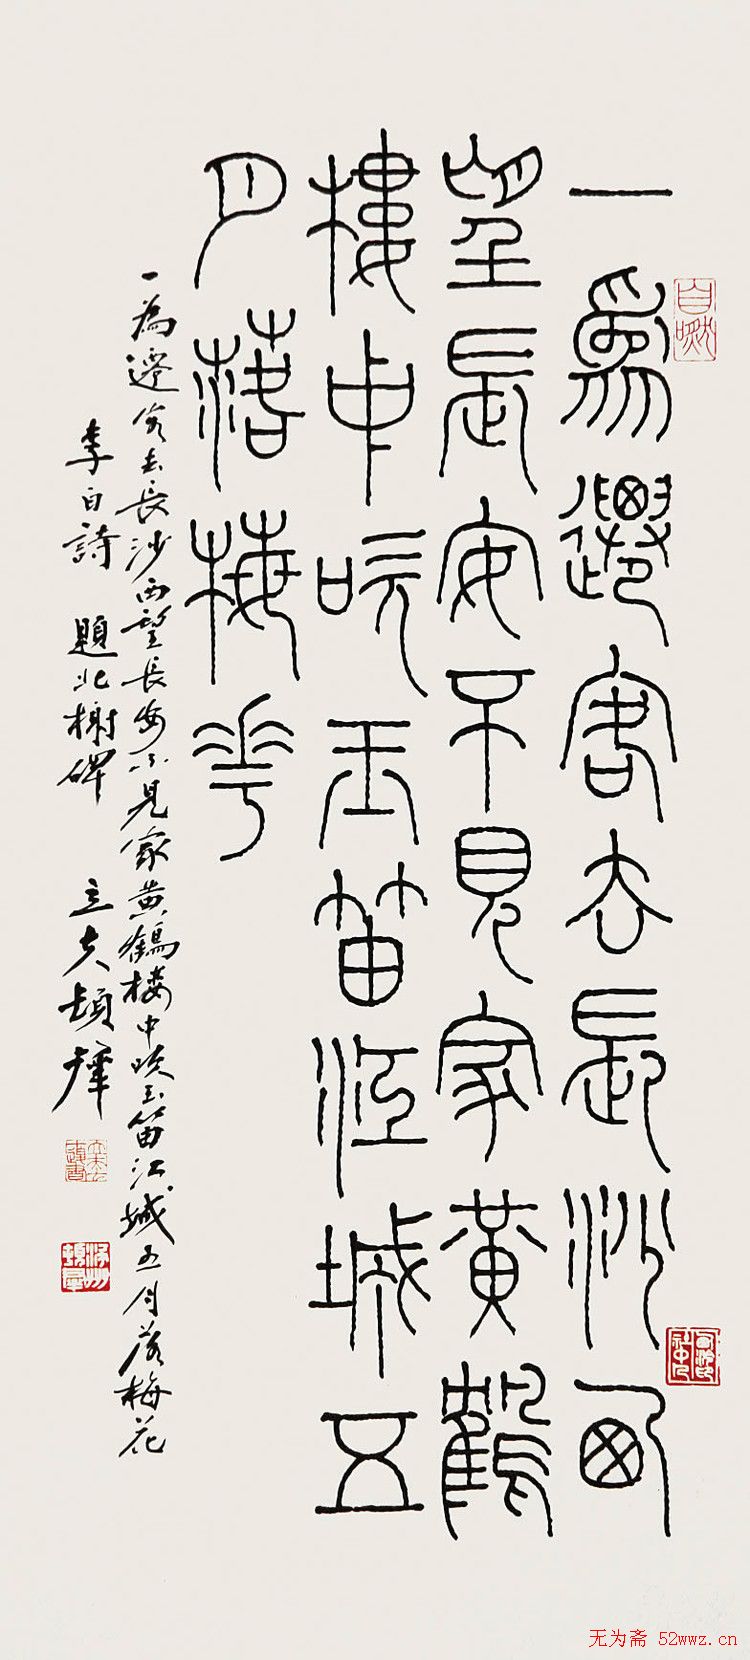 一為遷客去長沙西
望長安不見家黃鶴
樓中吹玉笛江城五
月落梅花
一為遷客去長沙西望長安不見家黃鶴楼中吹玉笛江城五月落梅花
李白詩 題北榭碑 立夫
无为斋 52wwz.cn